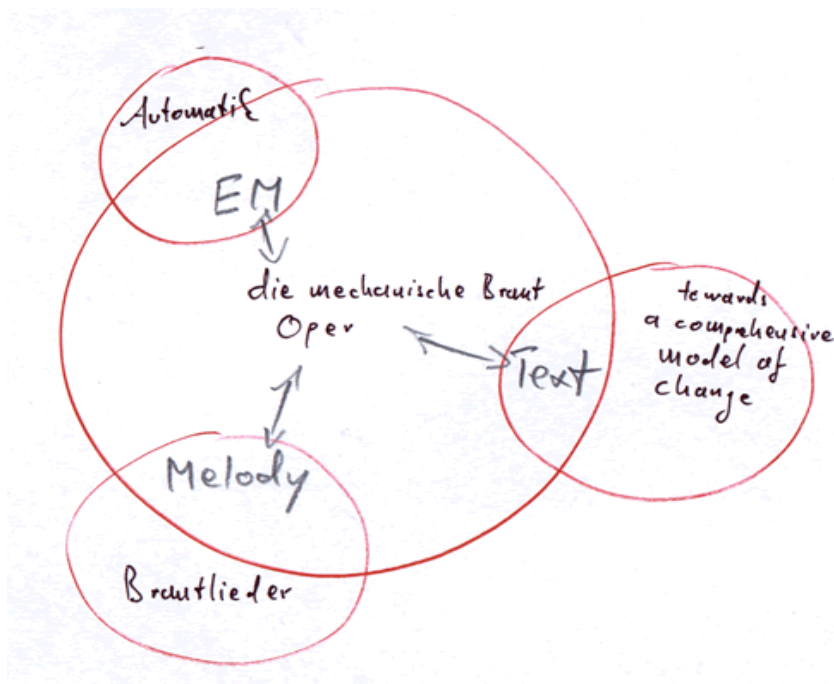 Automatik
EM
die mechanische Braut
Oper
Text
towards
a comprehensive
model of
change
Melody
Brautlieder